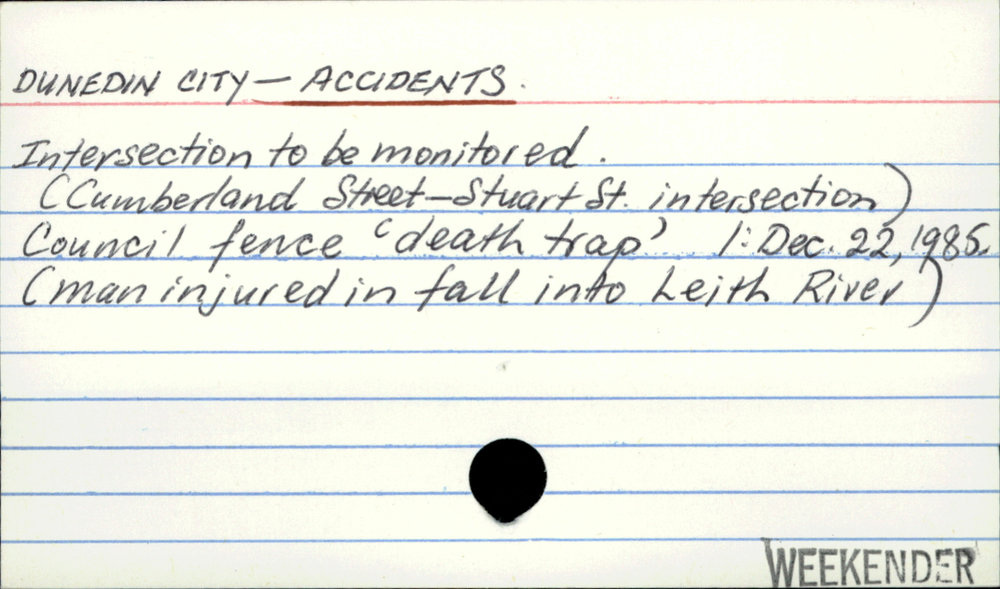 DUNEDIN CITY — ACCIDENTS.
Intersection to be monitored.
(Cumberland Street—Stuart St. intersection)
Council fence 'death trap' 1: Dec. 22, 1985.
(man injured in fall into Leith River)
WEEKENDER